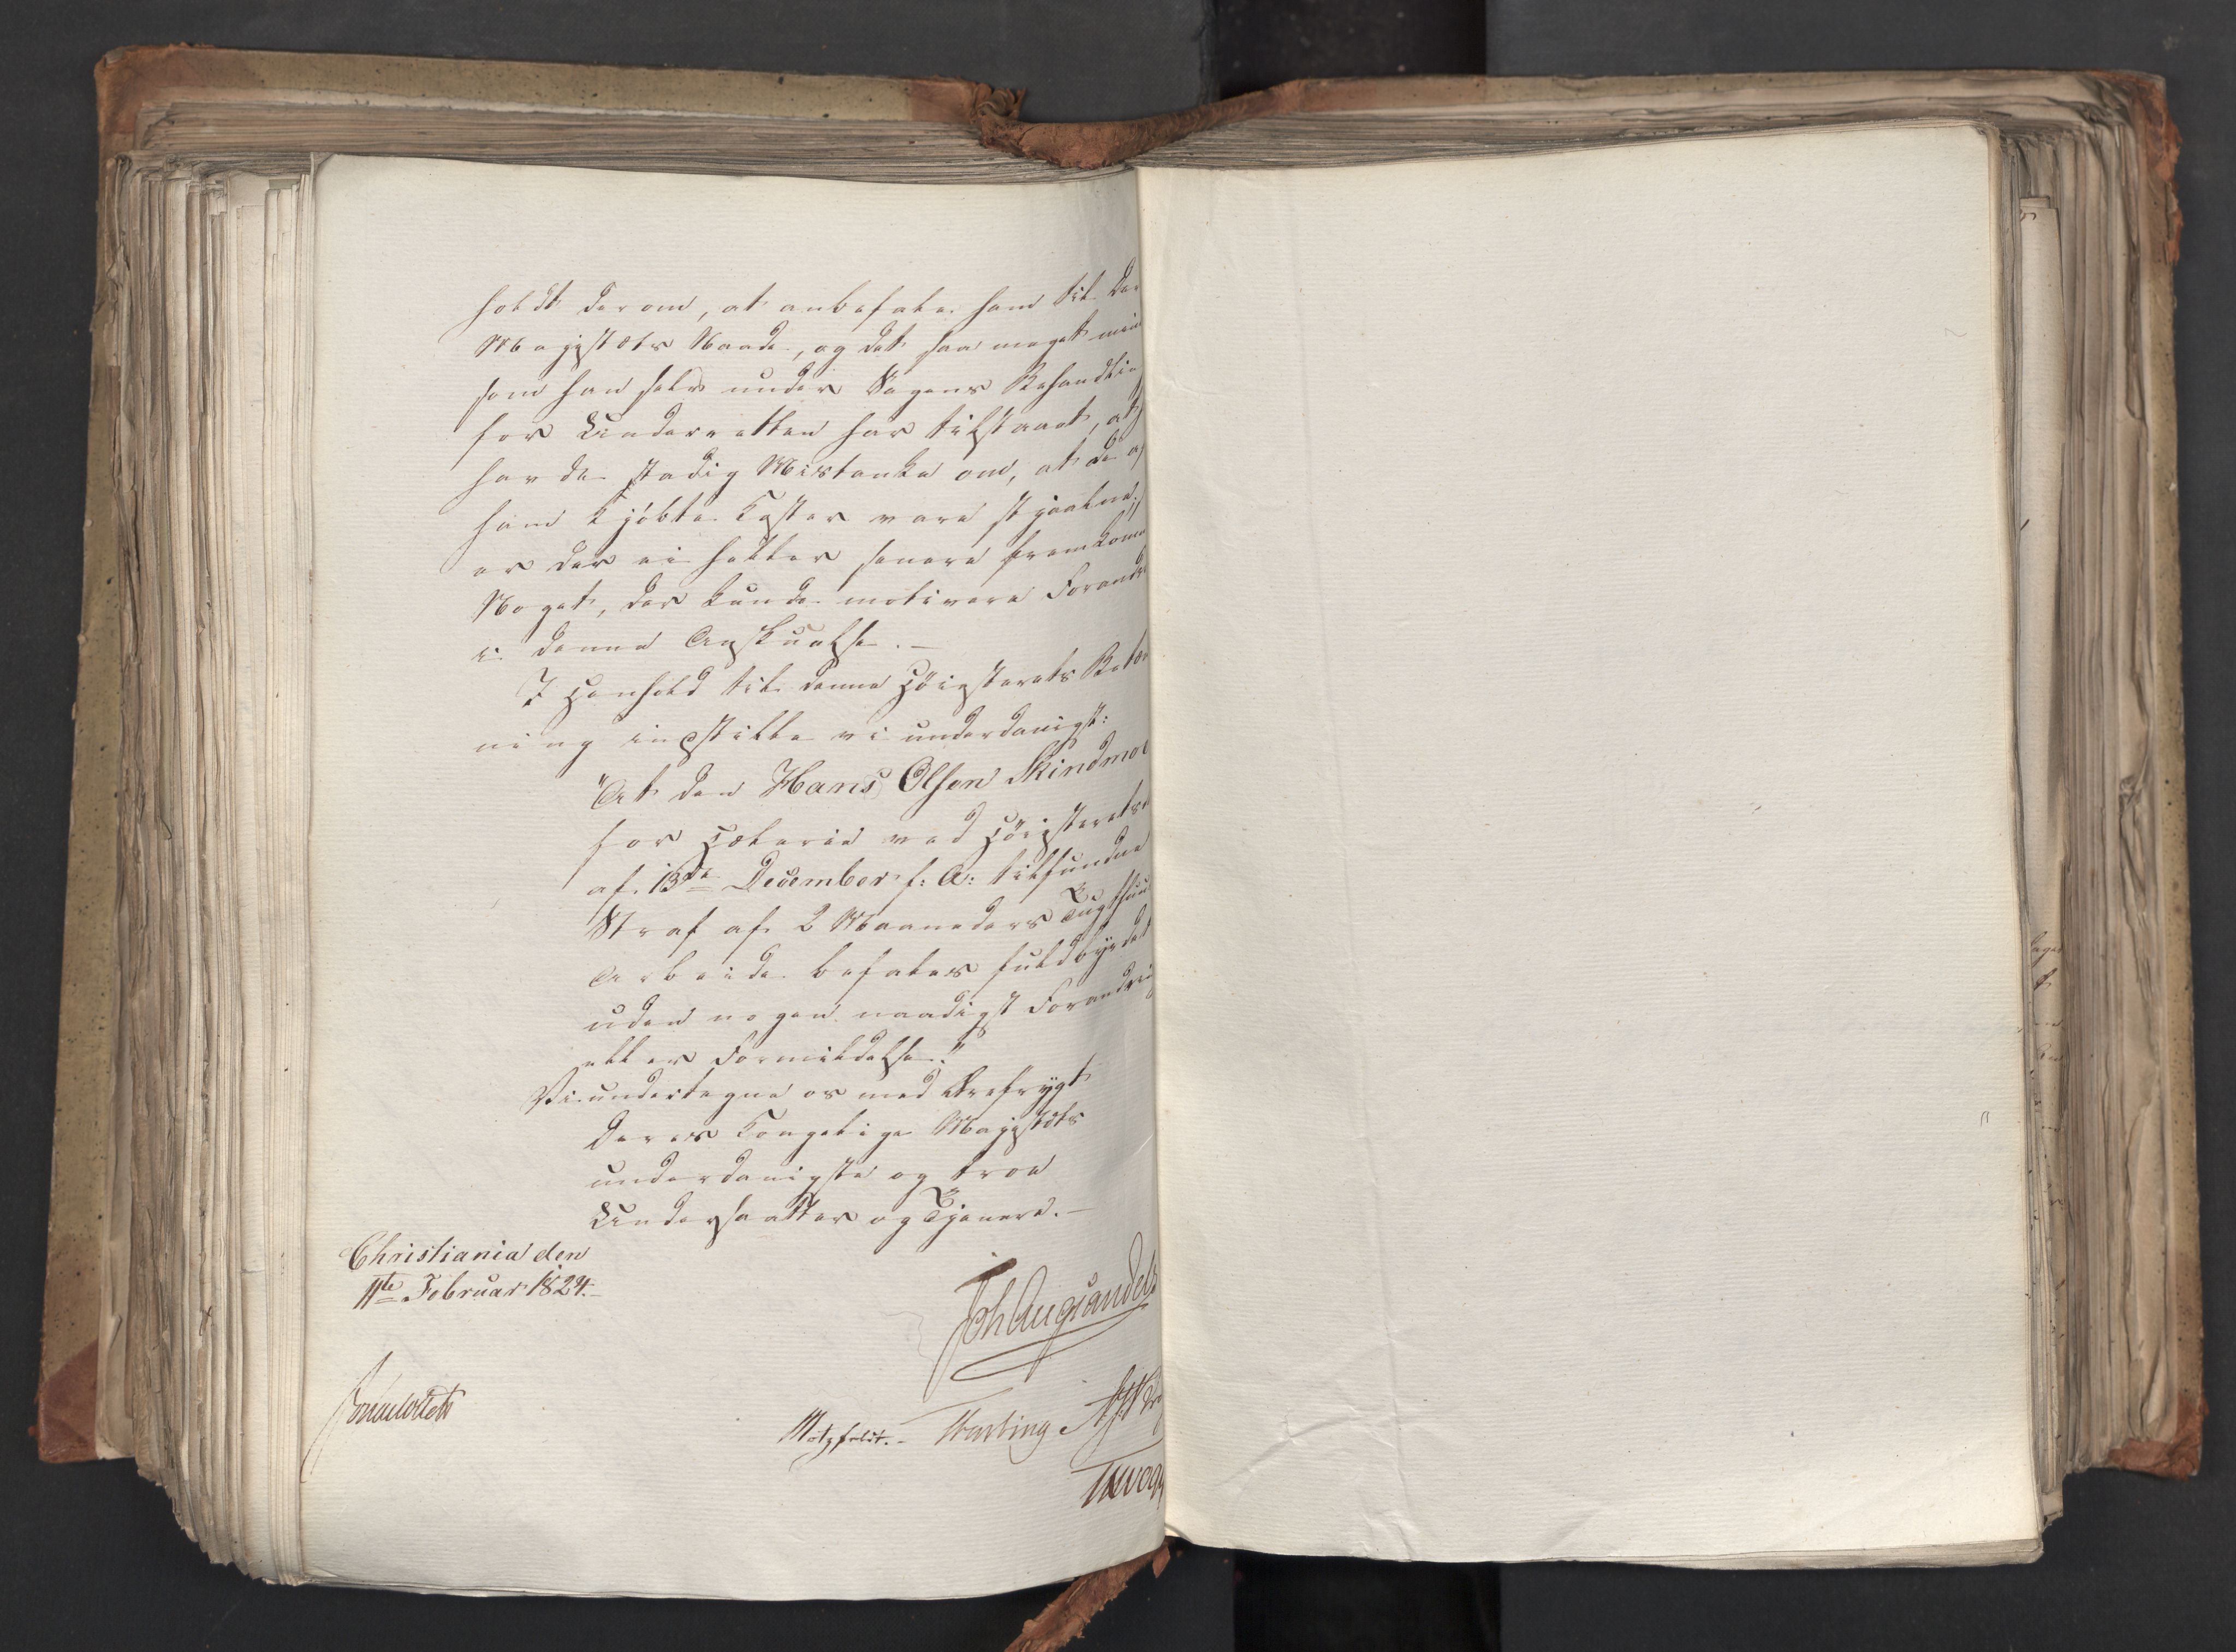 holdt derom, at anbefale ham til De
Majestæts Naade, og det saa meget min
som han selv under Sagens Behandlin
for Underretten har tilstaaet, at
havde stadig Mistanke om, at de af
ham kjöbte Koster vare stjaalne;
er der ei heller senere fremkomm
Noget, der kunde motivere Forandr
i denne Anskuelse. —
I Henhold til denne Höiesterets Betæn
ning indstille vi underdanigst:
"At den Hans Olsen Skindmoe
for Hæleri ved Höiesterets
af 13de December f: A: tilfundne
Straf af 2 Maaneders Tugthuus
Arbeide befales fuldbyrdet
uden nogen naadigst Forandrin
eller Formildelse."
Vi undertegne os med Ærefrygt
Deres Kongelige Majestæts
underdanigste og troe
Undersaatter og Tjenere. —
Christiania den
11te Februar 1824.
Joh Aug Sandels
Motzfeldt. Treschow